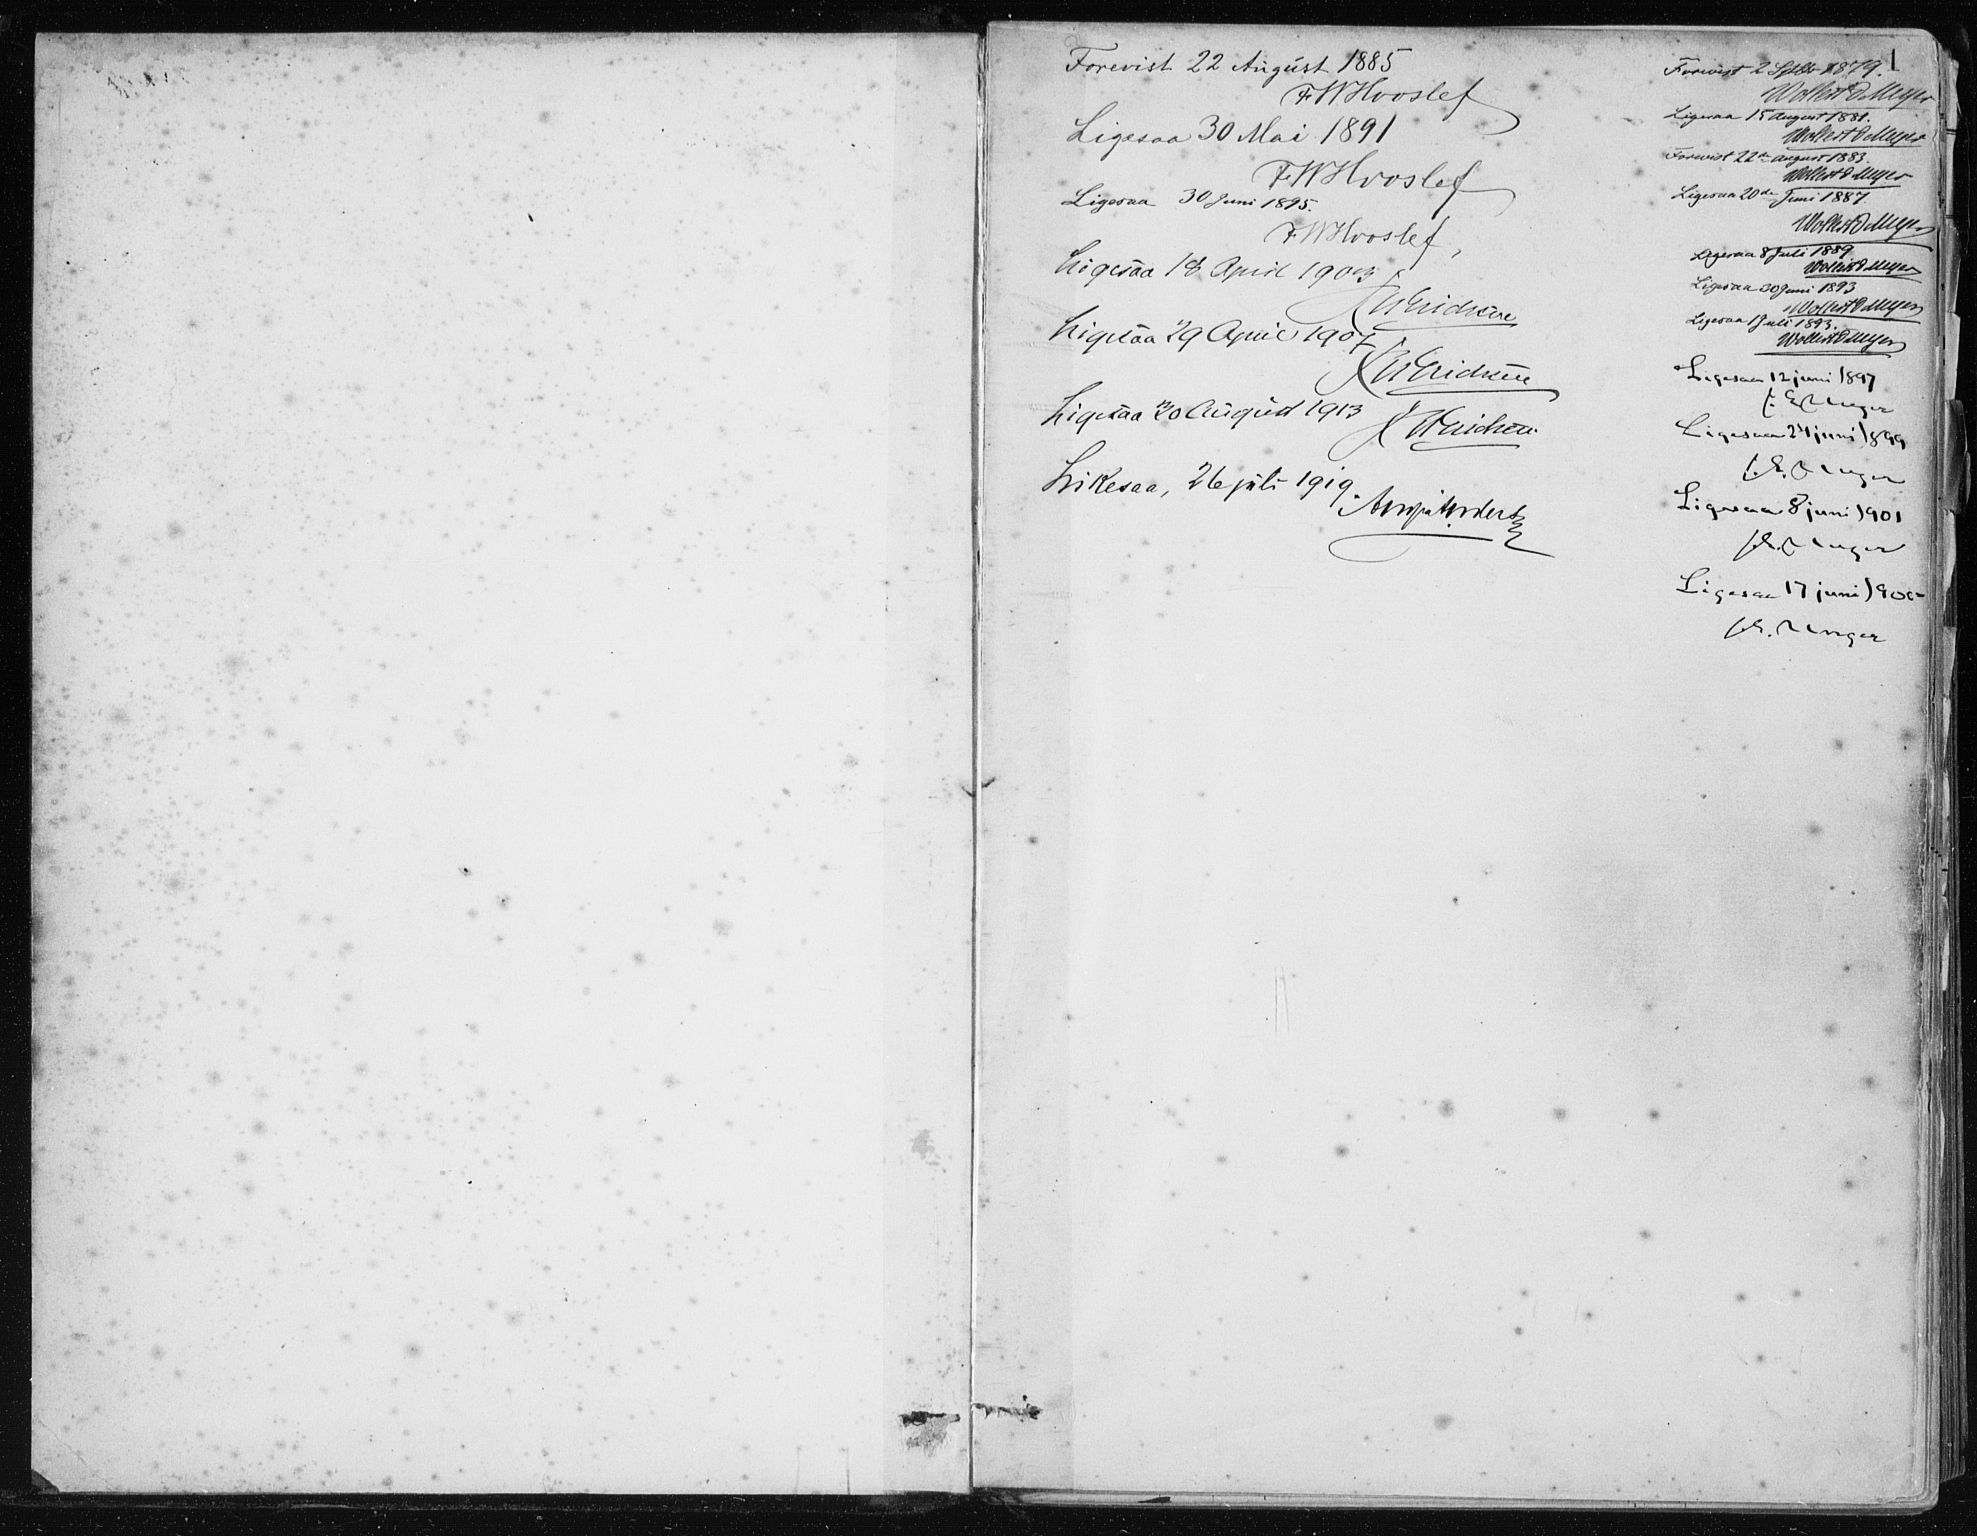 Forevist 22 August 1885
FWHvoslef
Ligesaa 30 Mai 1891
FWHvoslef
Ligesaa 30 Juni 1895.
FWHvoslef
Ligesaa 18 April 1903
Erichsen
Ligesaa 29 April 1907
Erichsen
Ligesaa 30 August 1913
Erichsen
Likesaa, 26 juli 1919.
1
Forevist 2 Septbr 1879.
Wollert D Meyer
Ligesaa 15 August 1881.
Wollert D Meyer
Forevist 22de August 1883.
Wollert D Meyer
Ligesaa 20de Juni 1887.
Wollert D Meyer
Ligesaa 8 Juli 1889
Wollert D Meyer
Ligesaa 20 Juni 1893
Wollert D Meyer
Ligesaa 1 Juli 1893.
Wollert D Meyer
Ligesaa 12 juni 1897
Unger
Ligesaa 24 juni 1899
Unger
Ligesaa 8 juni 1901
Unger
Ligesaa 17 juni
Unger